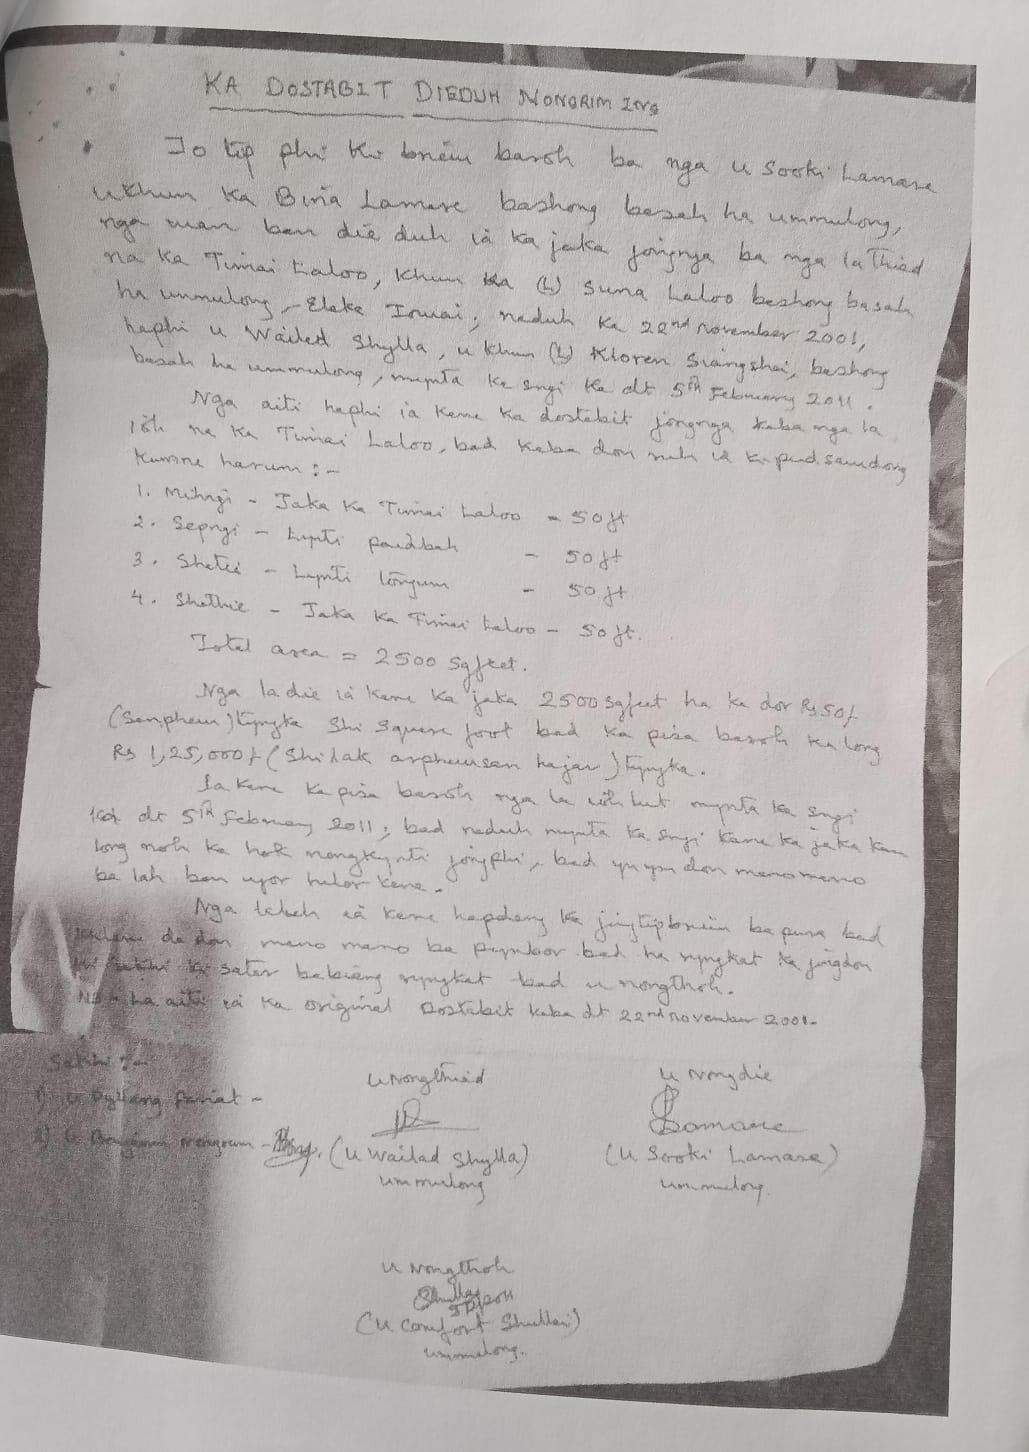 KA DOSTABIT DIEDUH NONGRIM ING
Io tip phi Ki briew baroh ba nga u Sooki Lamare
u Khun Ka Biria Lamare bashong basah ha ummulong,
nga wan ban die duh ia ka jaka jongnga ba nga la Thied
na Ka Timai Laloo, Khun Ka (L) Suna Laloo bashong basah
ha ummulong, Elaka Jowai, naduh Ka 22nd november 2001,
haphi u Wailed Shylla, u Khun (L) Kloren Siangshai, bashong
basah ha ummulong, mynta ka sngi Ka dt 5th February 2011.
Nga aiti haphi ia Kane Ka dostabit jongnga kaba nga la
ioh na Ka Timai Laloo, bad kaba don ruh ia ki pud samdong
Kumne harum :-
1. Mihngi - Jaka Ka Timai Laloo - 50 ft
2. Sepngi - Lynti paidbah - 50 ft
3. Shatei - Lynti longum - 50 ft
4. Shathie - Jaka Ka Timai Laloo - 50 ft.
Total area = 2500 Sqfeet.
Nga la die ia Kane Ka jaka 2500 sqfeet ha ka dor Rs 50/-
(San phew) tyngka Shi Square foot bad Ka pisa baroh ka long
Rs 1,25,000/- (Shi lak arphewsan hajar) tyngka.
Ia Kane Ka pisa baroh nga la ioh kut mynta ka sngi
dt 5th February 2011, bad naduh mynta ka sngi Kane ka jaka kan
long noh ka hok nongkynti jongphi, bad ym don mano mano
ba lah ban ujor halor Kane.
Nga labeh ia Kane hapdeng Ka jingtipbriew bapura bad
khlem da don mano mano ba pynbor bad ha ryngkat ka jingdon
ki sakhi ki sater babiang ryngkat bad u nongthoh.
Nga la aiti ia Ka original Dostabit kaba dt 22nd november 2001.
Sakhi :-
u Nongthied
u Nongdie
1) U Dyllang Pariat -
Lamare
2) U Benjamin Nongrum - (U Wailad Shylla)
(U Sooki Lamare)
ummulong
ummulong.
u Nongthoh
Shullai
5/2/2011
(U Comfort Shullai)
ummulong.